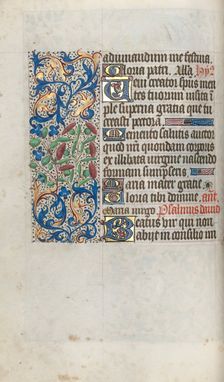 adiuuandum me festina
Gloria patri. Alla. 
Veni creator spiritus men
tes tuorum uisita im
ple superna gratia que tu
creasti pectora.
Memento salutis auctor
quod nostri quondam corporis
ex illibata uirgine nascendo
formam sumpseris
Maria mater gratie
Gloria tibi domine. ant.
Maria uirgo. Psalmus dauid
Beatus vir qui non
abijt in consilio im